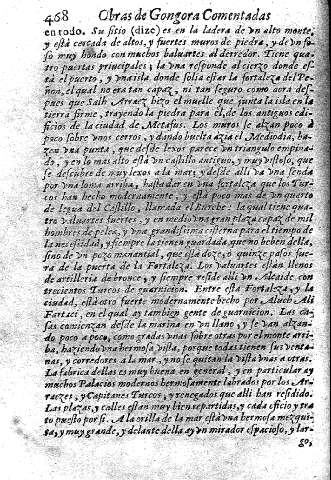 468 Obras de Gongora Comentadas
en todo. Su sitio (dize) es en la ladera de vn alto monte,
y está cercada de altos, y fuertes muros de piedra, y de vn fo-
so muy hondo con muchos baluartes al derredor. Tiene qua-
tro puertas principales; la vna responde al cierzo donde es-
tà el puerto, y vna isla donde solia estar la fortaleza del Pe-
ñon, el qual no era tan capaz, ni tan seguro como aora des-
pues que Salh Arraez hizo el muelle que junta la isla en la
tierra firme, trayendo la piedra para èl, de los antiguos edi-
ficios de la ciudad de Metafus. Los muros se alzan poco à
poco sobre vnos cerros, y dando buelta azia el Mediodia, ha-
zen vna punta, que desde lexos parece vn triangulo empina-
do, y en lo mas alto està vn castillo antiguo, y muy vistoso, que
se descubre de muy lexos a la mar; y desde alli va vna senda
por vna loma arriba, hasta dar en vna fortaleza que los Tur-
cos han hecho modernamente, y està poco mas de vn quarto
de legua del Castillo, llamada el Burche: la qual tiene qua-
tro valuartes fuertes, y en medio vna gran plaza capaz de mil
hombres de pelea, y vna grandissima cisterna para el tiempo de
la necessidad, y siempre la tienen guardada que no beben della,
sino de vn pozo manantial, que està doze, ò quinze passos fue-
ra de la puerta de la Fortaleza. Los valuartes están llenos
de artilleria de bronce, y siempre reside alli vn Alcaide con
trecientos Turcos de guarnicion. Entre esta Fortaleza, y la
ciudad, està otro fuerte modernamente hecho por Aluch Ali
Fartaci, en el qual ay tambien gente de guarnicion. Las ca-
sas comienzan desde la marina en vn llano, y se van alzan-
do poco a poco, como gradas vnas sobre otras por el monte arri-
ba, haziendo vna hermosa vista, porque todas tienen sus venta-
nas, y corredores a la mar, y no se quitan la vista vnas a otras.
La fabrica dellas es muy buena en general, y en particular ay
muchos Palacios modernos hermosamente labrados por los Ar-
raezes, y Capitanes Turcos, y renegados que alli han residido.
Las plazas, y calles están muy bien repartidas, y cada oficio y tra
to puesto por si. A la orilla de la mar està vna hermosa mezqui-
ta, y muy grande, y delante della ay vn mirador espacioso, y lar-
go,